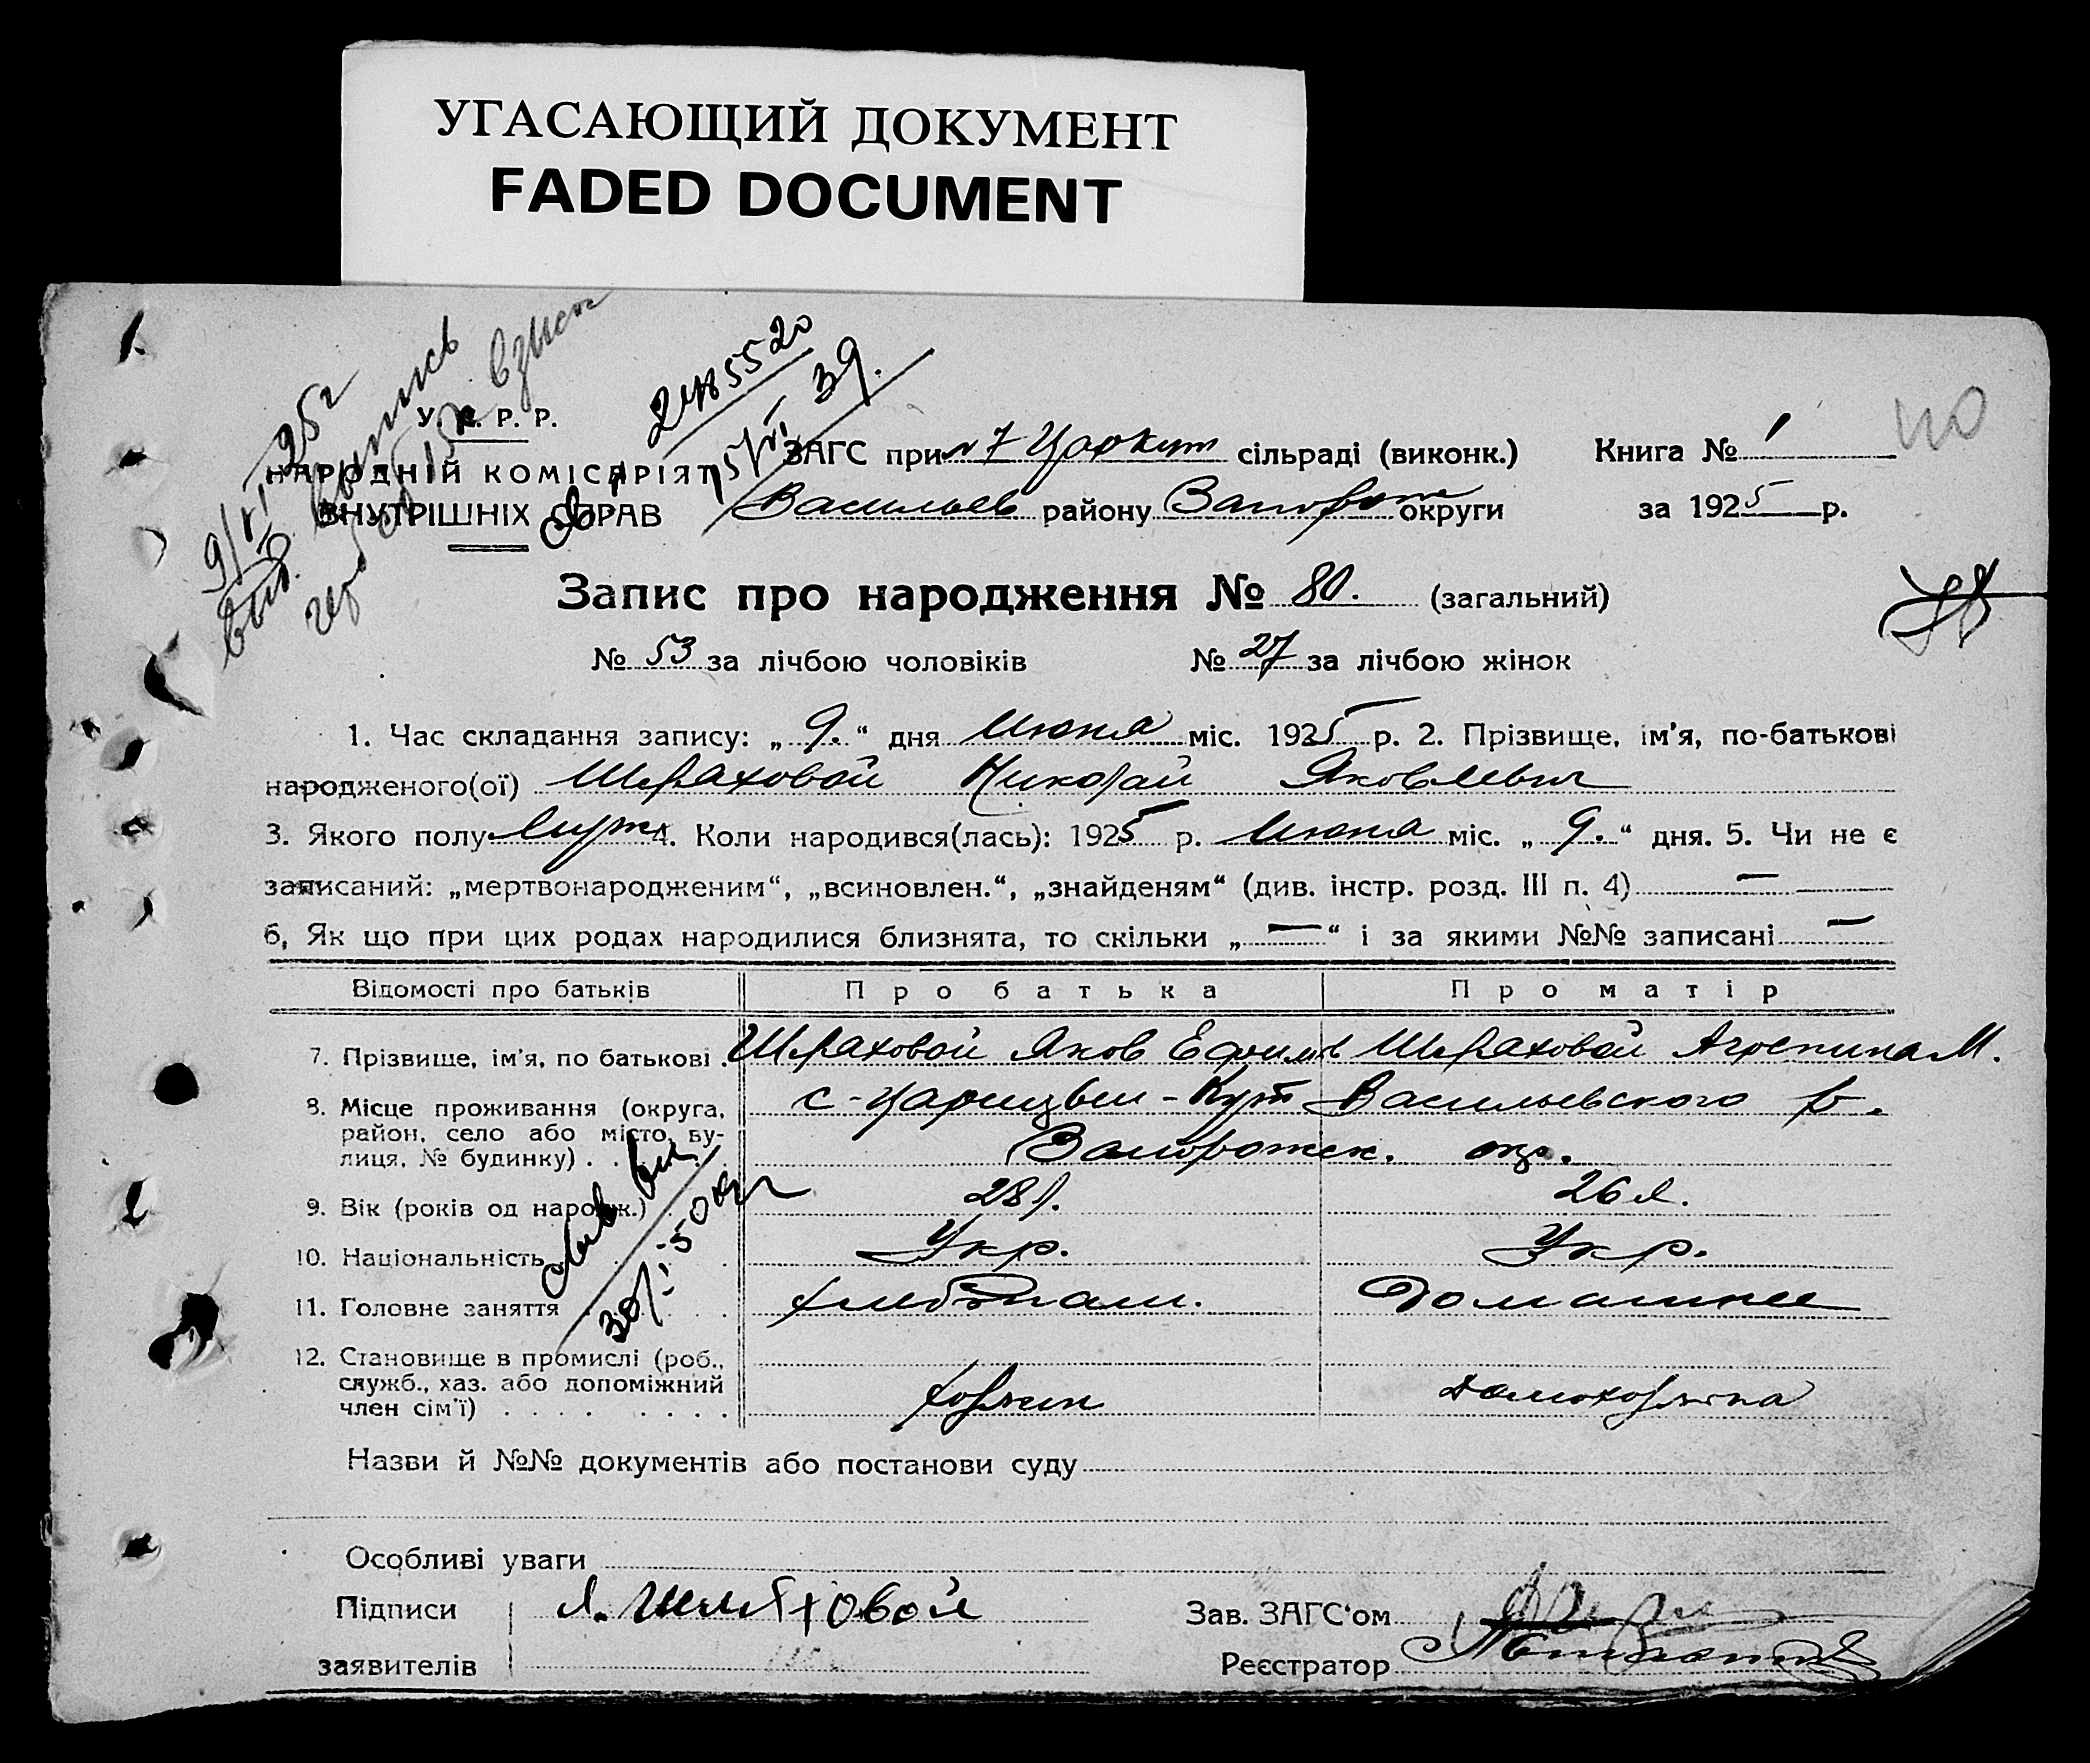 УГАСАЮЩИЙ ДОКУМЕНТ
FADED DOCUMENT
У. С. Р. Р.
НАРОДНІЙ КОМІСАРІЯТ
ВНУТРІШНІХ СПРАВ
39.
ЗАГС при сільраді (виконк.) Книга № 1
40
Васильев району Запорож округи за 1925 р.
Запис про народження № 80. (загальний)
№ 53 за лічбою чоловіків № 27 за лічбою жінок
1. Час складання запису: „ 9. “ дня Июня міс. 1925 р. 2. Прізвище, ім'я, по-батькові
народженого(ої) Николай Яковлевич
3. Якого полу Муж. 4. Коли народився(лась): 1925 р. Июня міс. „ 9. “ дня. 5. Чи не є
записаний: „мертвонародженим“, „всиновлен.“, „знайденям“ (див. інстр. розд. III п. 4) —
6, Як що при цих родах народилися близнята, то скільки „ — “ і за якими №№ записані —
Відомості про батьків Про батька Про матір
7. Прізвище, ім'я, по батькові . Яков Ефим М.
8. Місце проживання (округа, с-Царицын-Кут Васильевского р.
район, село або місто, ву-
лиця, № будинку) . . Запорожск. окр.
9. Вік (років од народж.) 28 л. 26 л.
10. Національність Укр. Укр.
11. Головне заняття хлебопаш. Домашнее
12. Становище в промислі (роб.,
служб., хаз. або допоміжний
член сім'ї) . . . . . . . . хозяин домохозяйка
Назви й №№ документів або постанови суду
Особливі уваги
Підписи Зав. ЗАГС'ом
заявителів Реєстратор